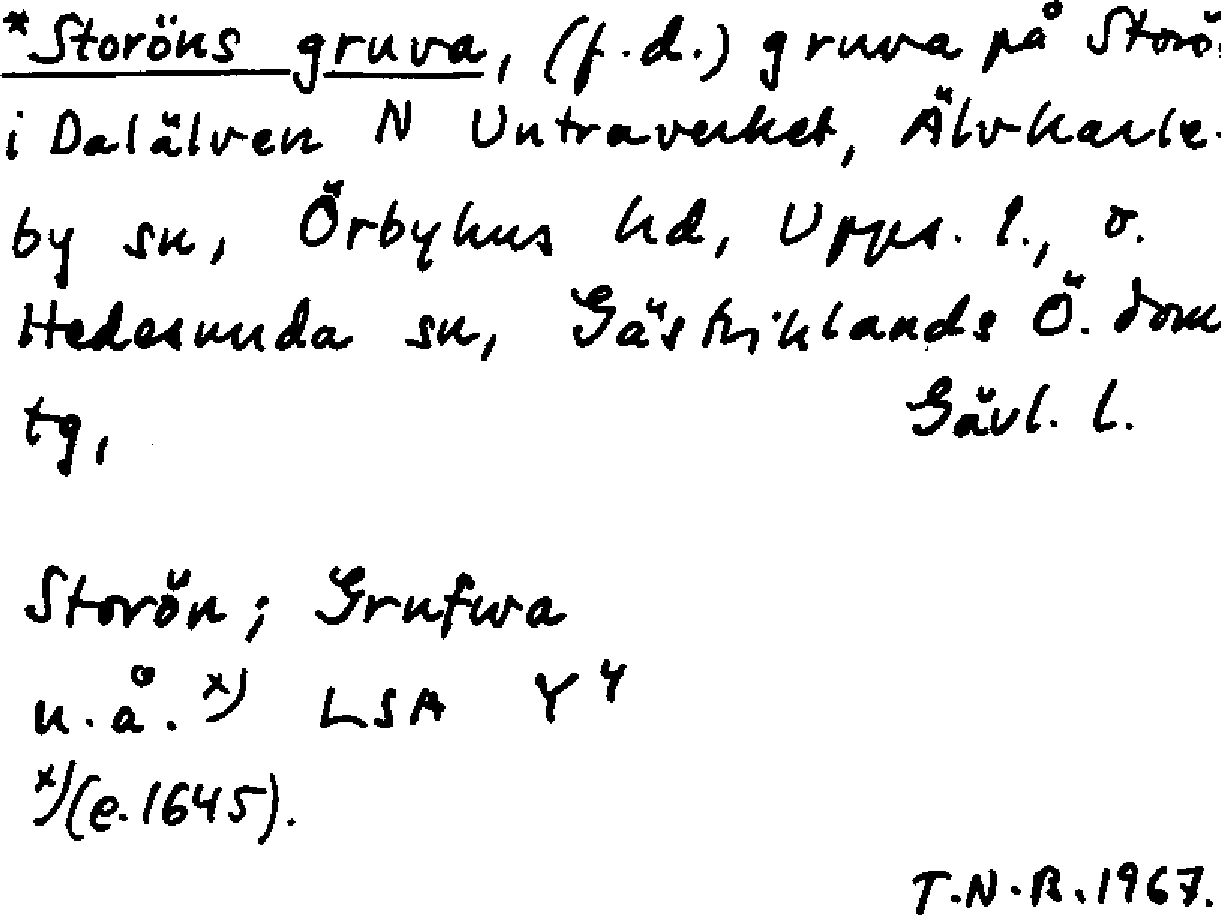 *Storöns gruva, (f.d.) gruva på Storö.
i Dalälven N Untraverket, Älvkarle-
by sn, Örbyhus hd, Upps. l., o.
Hedesunda sn, Gästriklands Ö. dom
tg, Gävl. l.
Storön; Grufwa
u.å. x) LSA Y4
x)(e.1645).
T.N.R.1967.